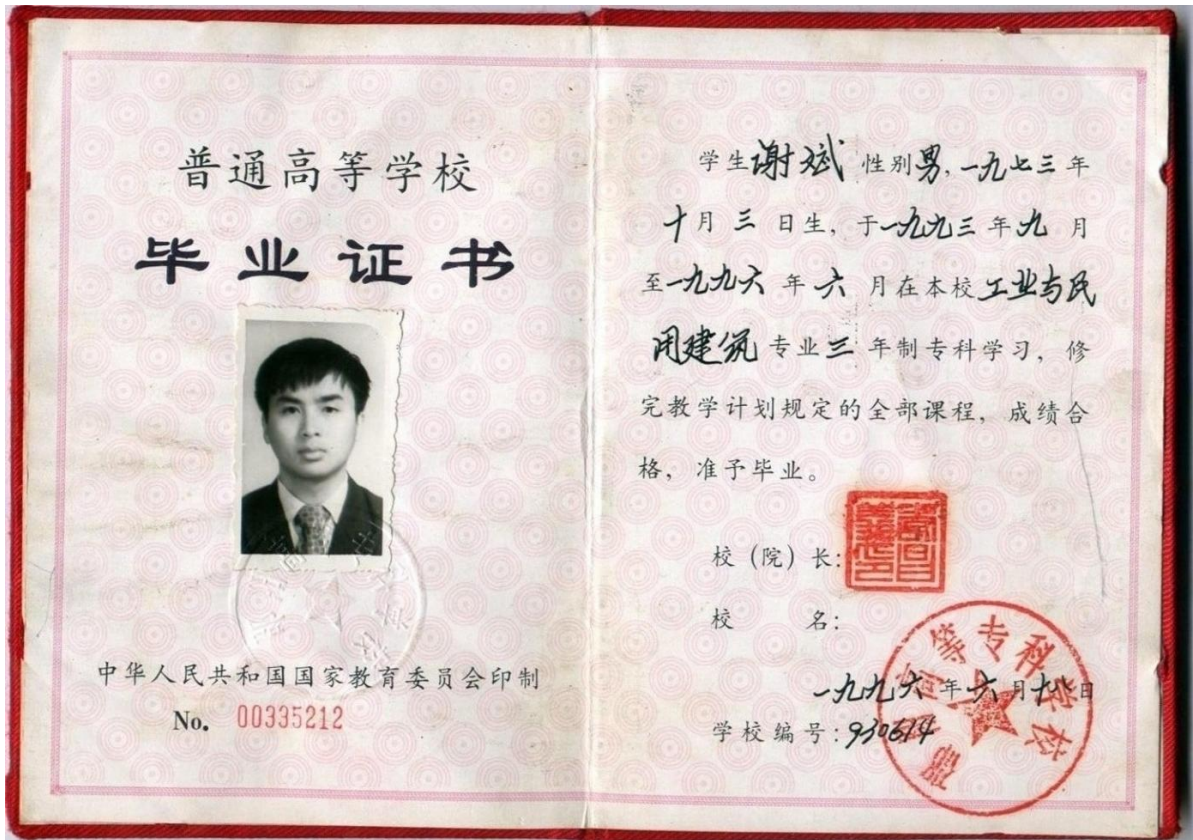 普通高等学校
毕业证书
中华人民共和国国家教育委员会印制
No. 00335212
学生谢斌 性别男,一九七三年
十月三日生,于一九九三年九月
至一九九六年六月在本校工业与民
用建筑专业三年制专科学习,修
完教学计划规定的全部课程,成绩合
格,准予毕业。
校(院)长:
校 名:
高等专科学校
一九九六年六月十八日
学校编号:930614